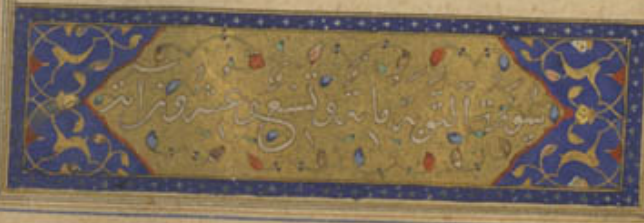 سورة التوبة مایة و تسع و عشرون آیة